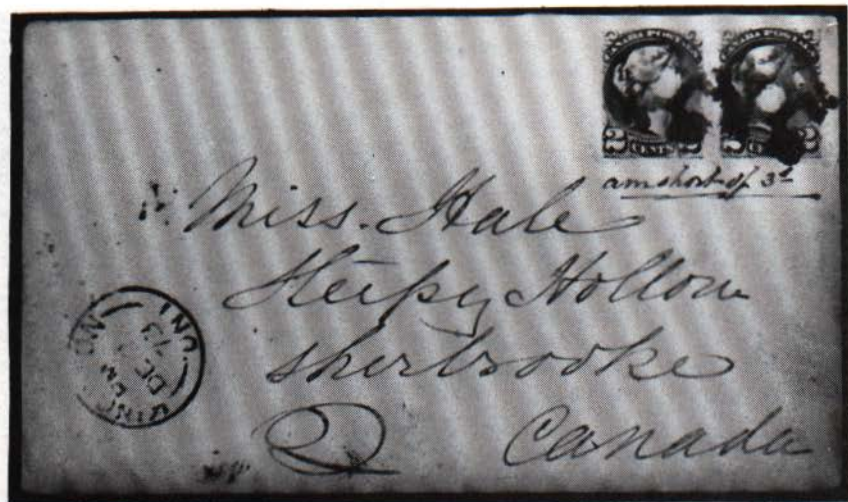 CANADA POSTAGE CANADA POSTAGE
2 CENTS 2 2 2
am short of 3ˢ
Miss. Hale
Sleepy Hollow
Sherbrooke
Q Canada
ONT
DE